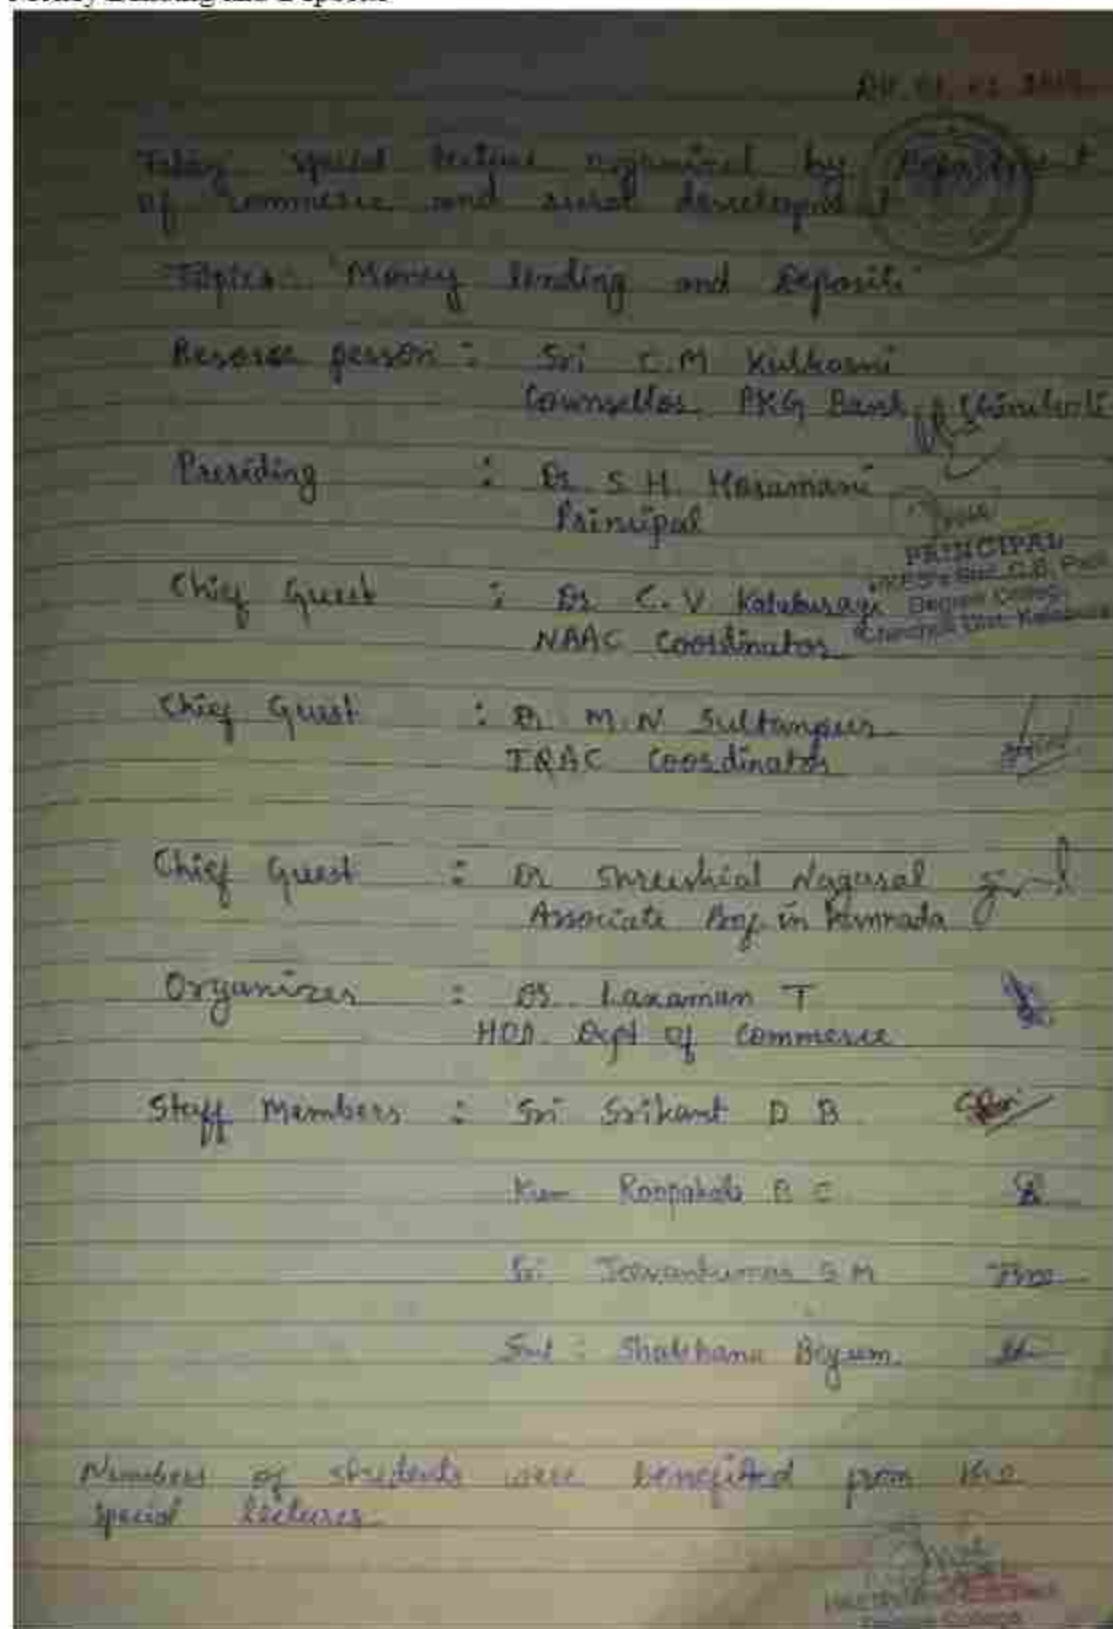 Today special lecture organized by Department
of commerce and rural development
Topics: "Money lending and Deposits"
Resorce person : Sri C.M Kulkarni
Counsellor PKG Bank, Chincholi
Presiding : Dr. S.H. Hosamani
Principal
PRINCIPAL
Degree College
Chief Guest : Dr. C.V Kalaburagi
NAAC Coordinator
Chief Guest : Dr M.N Sultanpur
IQAC Coordinator
Chief Guest : Dr Nagaral
Associate Prof. in Kannada
Organizer : Dr. Laxaman T
HOD. Dept of Commerce
Staff Members : Sri Srikant D B
Kum Roopakala B C
Sri S M
Smt : Begum
Numbers of students were benefited from the
special lectures